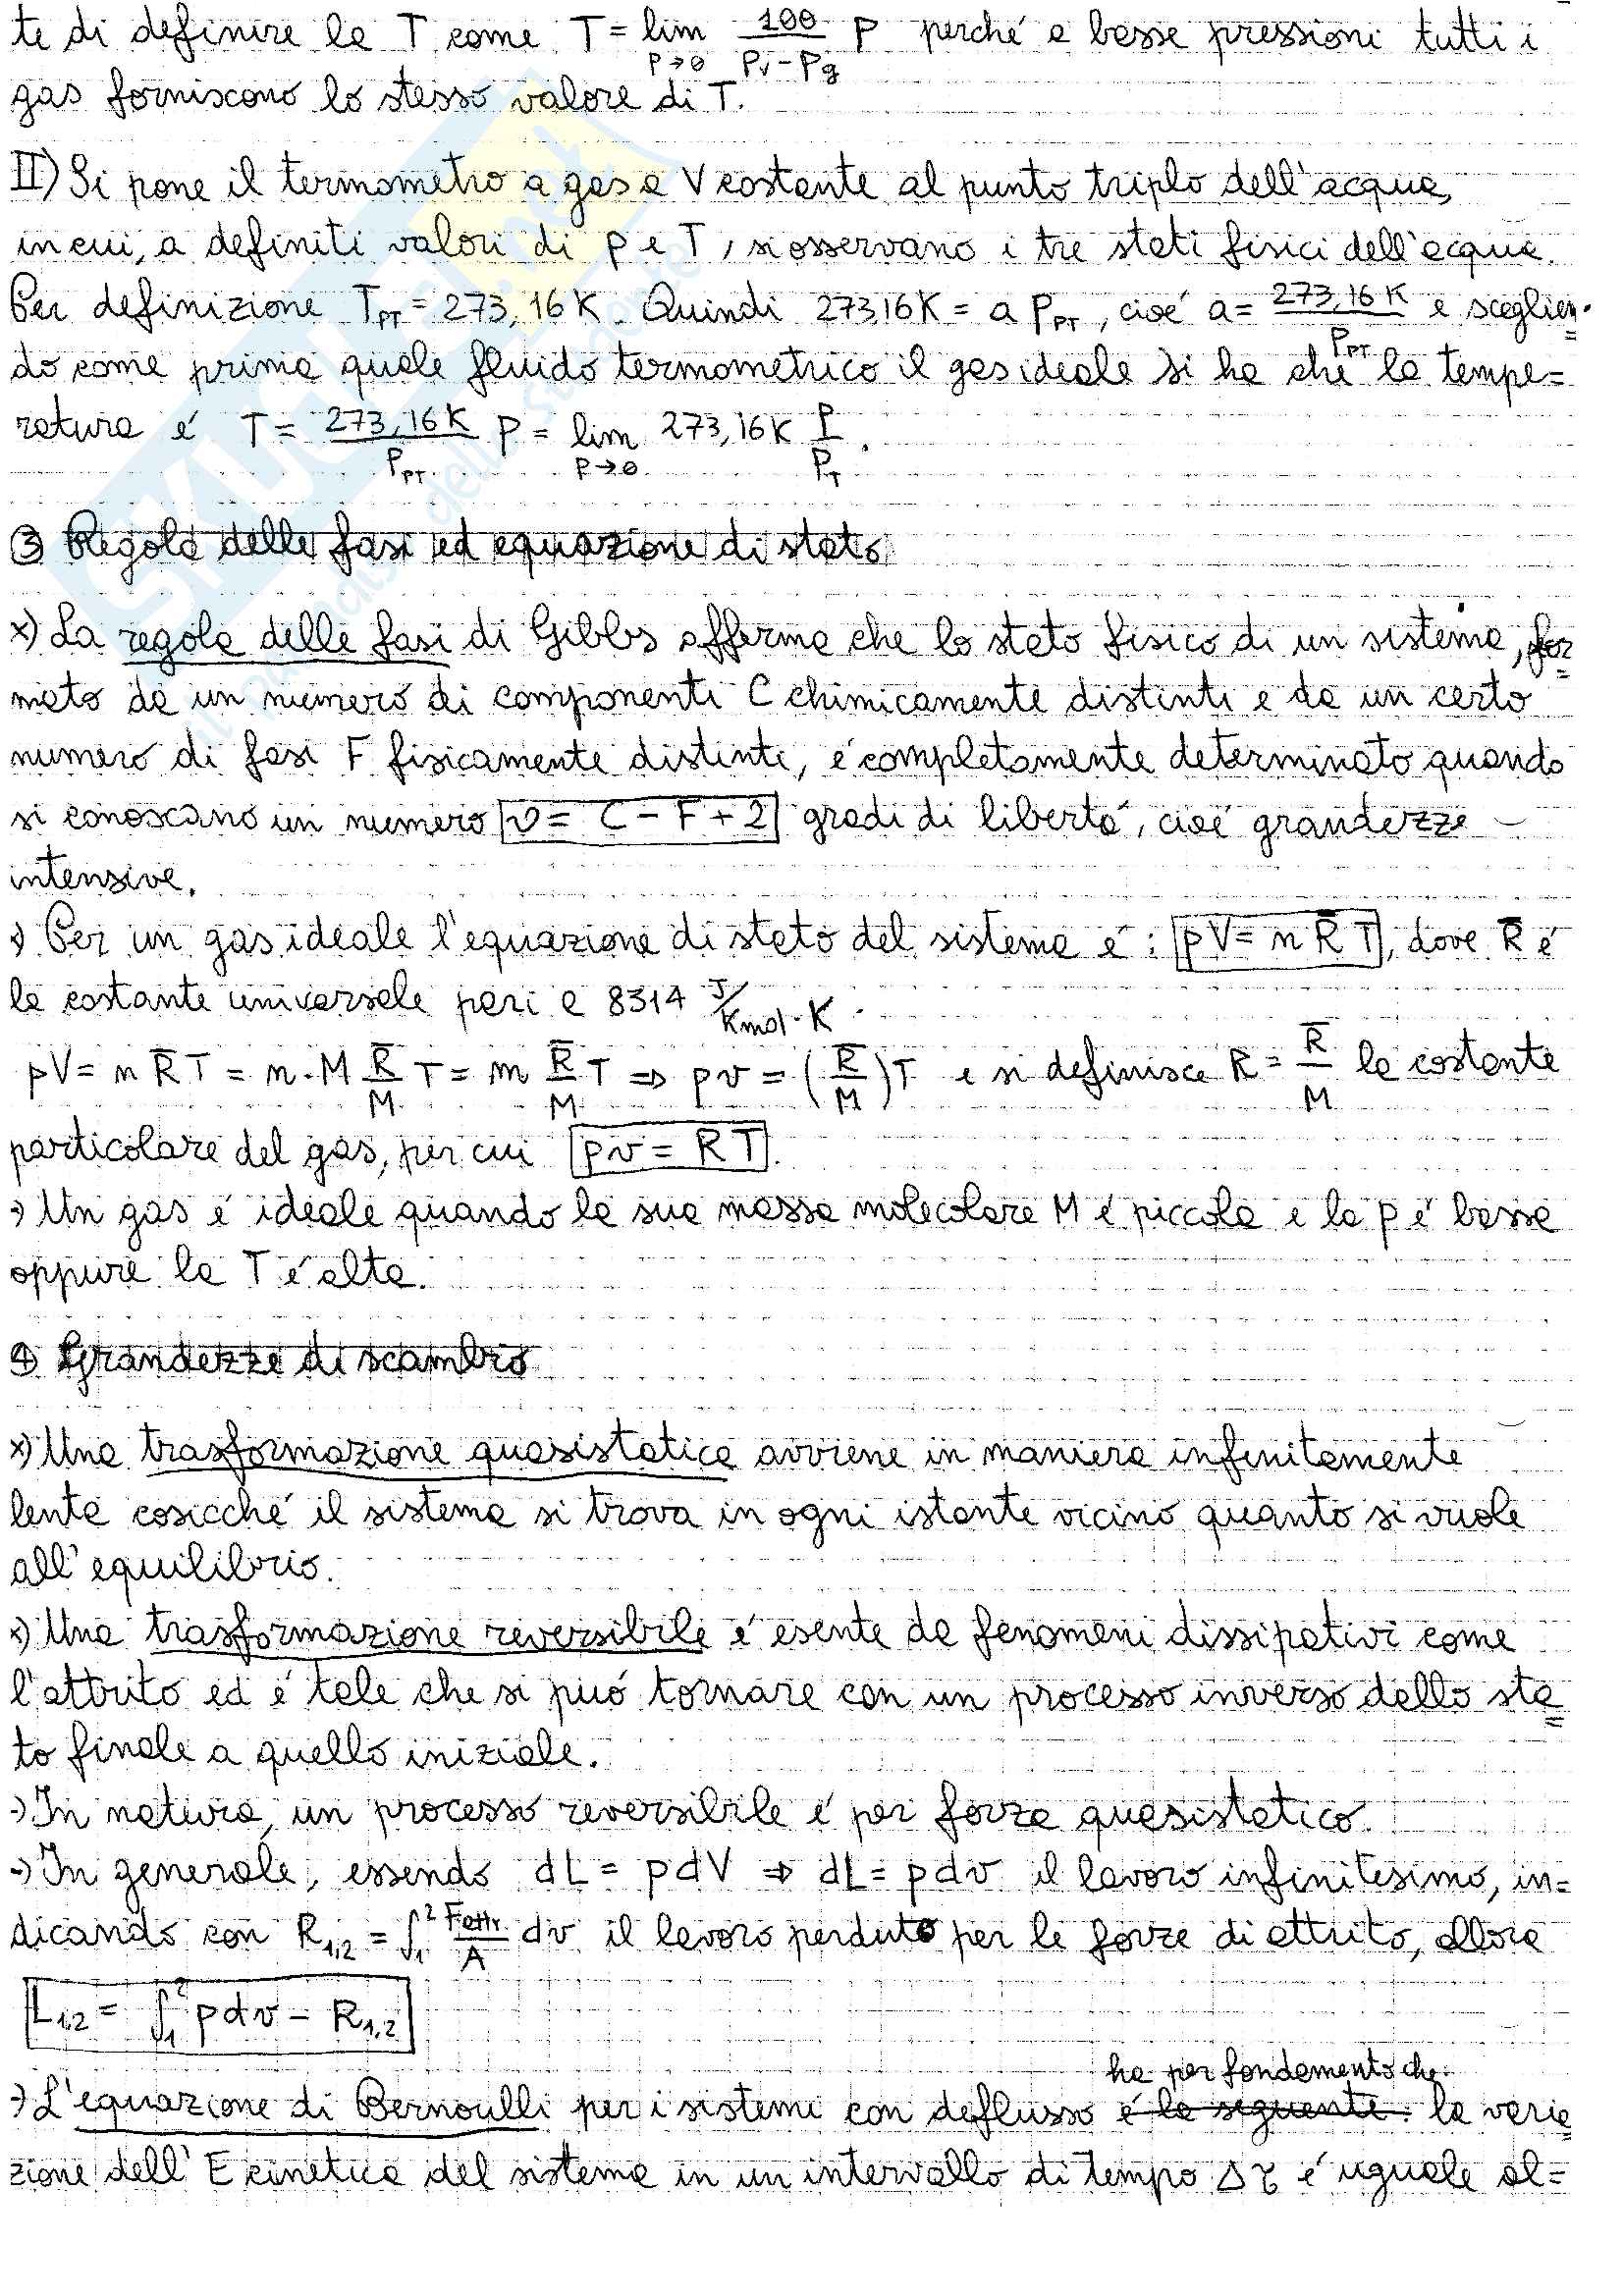 te di definire la T come T = lim p→0 100/(Pv − Pg) P perché a basse pressioni tutti i
gas forniscono lo stesso valore di T.
II) Si pone il termometro a gas a V costante al punto triplo dell'acqua,
in cui, a definiti valori di p e T, si osservano i tre stati fisici dell'acqua.
Per definizione T_PT = 273,16 K. Quindi 273,16 K = a P_PT, cioé a = 273,16 K / P_PT e sceglien-
do come prima quale fluido termometrico il gas ideale si ha che la tempe=
ratura é T = 273,16 K / P_PT P = lim p→0 273,16 K P/P_T.
③ Regola delle fasi ed equazione di stato
x) La regola delle fasi di Gibbs afferma che lo stato fisico di un sistema, for=
mato da un numero di componenti C chimicamente distinti e da un certo
numero di fasi F fisicamente distinte, é completamente determinato quando
si conoscano un numero v = C − F + 2 gradi di libertá, cioé grandezze
intensive.
→ Per un gas ideale l'equazione di stato del sistema é: pV = n R̅ T, dove R̅ é
la costante universale pari a 8314 J/Kmol·K.
pV = n R̅ T = n·M R̅/M T = m R̅/M T ⇒ pv = (R̅/M)T e si definisce R = R̅/M la costante
particolare del gas, per cui pv = RT.
→ Un gas é ideale quando la sua massa molecolare M é piccola e la p é bassa
oppure la T é alta.
④ Grandezze di scambio
x) Una trasformazione quasistatica avviene in maniera infinitamente
lenta cosicché il sistema si trova in ogni istante vicino quanto si vuole
all'equilibrio.
x) Una trasformazione reversibile é esente da fenomeni dissipativi come
l'attrito ed é tale che si puó tornare con un processo inverso dallo sta=
to finale a quello iniziale.
→ In natura, un processo reversibile é per forza quasistatico.
→ In generale, essendo dL = pdV ⇒ dL = pdv il lavoro infinitesimo, in=
dicando con R1,2 = ∫₁² Fattr./A dv il lavoro perduto per le forze di attrito, allora
L1,2 = ∫₁² pdv − R1,2
ha per fondamento che
→ L'equazione di Bernoulli per i sistemi con deflusso é la seguente: la varia=
zione dell'E cinetica del sistema in un intervallo di tempo Δτ é uguale al=